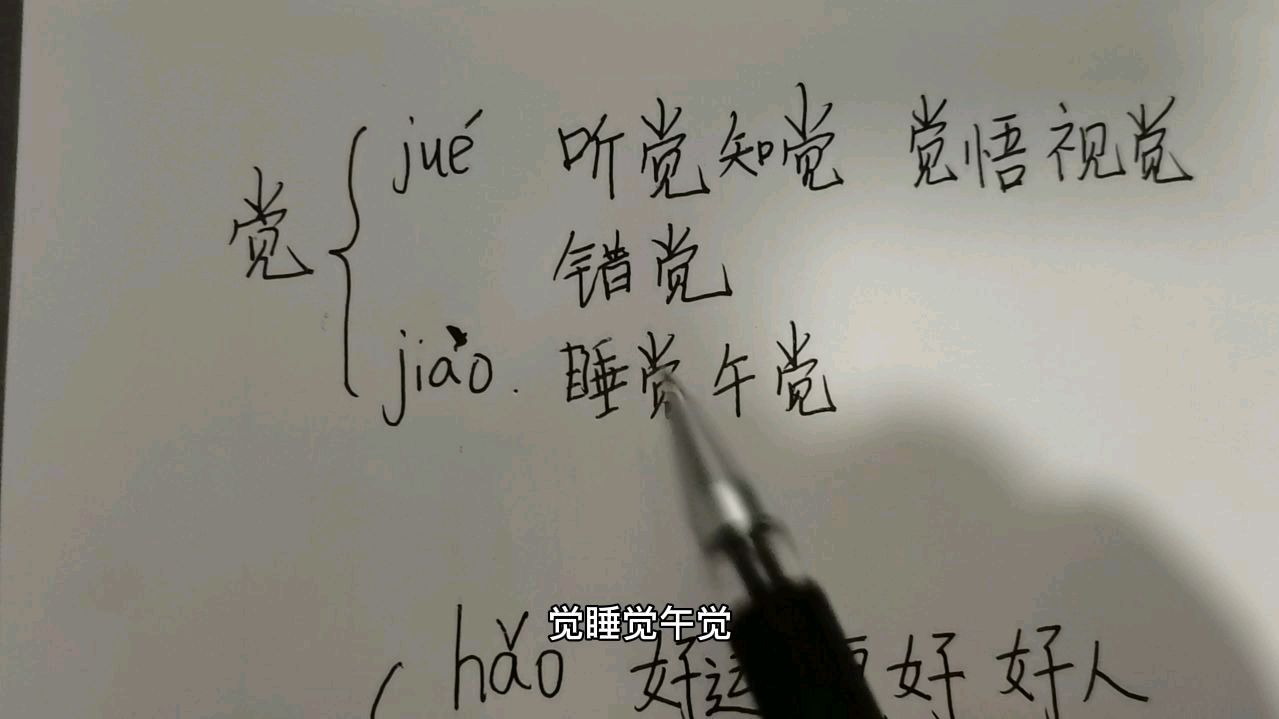 jué 听觉 知觉 觉悟 视觉
觉
错觉
jiào. 睡觉 午觉
觉睡觉午觉
hǎo 好运 好 好人